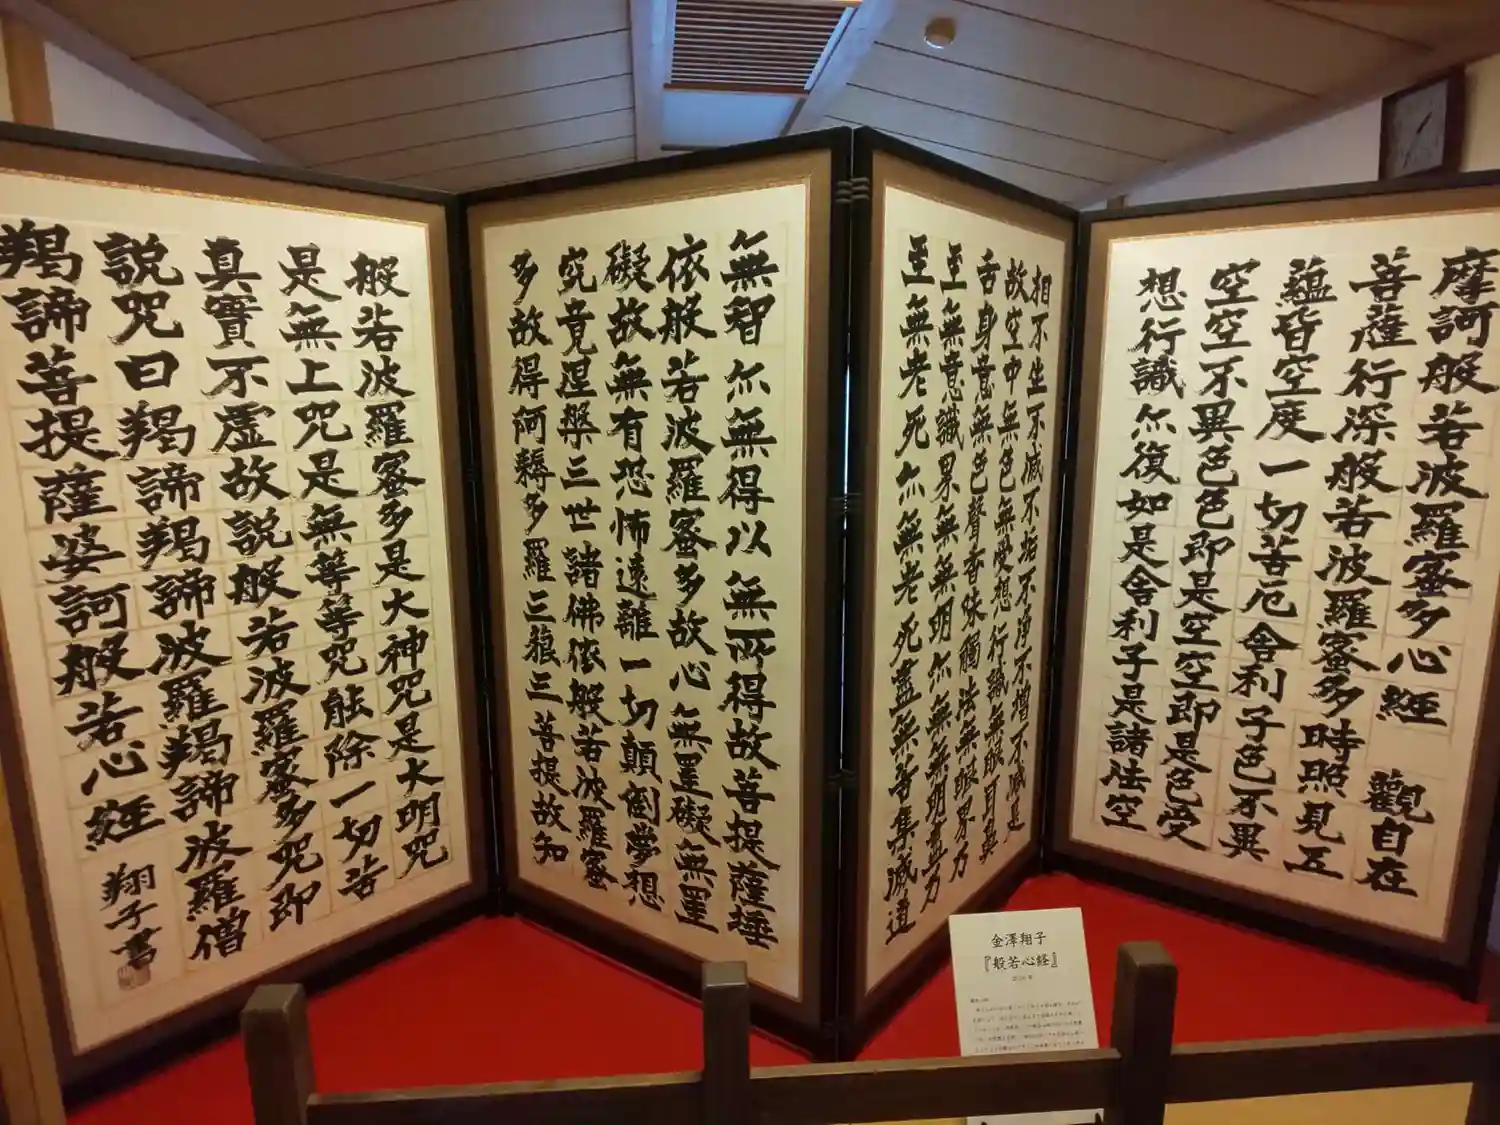 摩訶般若波羅蜜多心經 觀自在
菩薩行深般若波羅蜜多時照見五
蘊皆空度一切苦厄舍利子色不異
空空不異色色即是空空即是色受
想行識亦復如是舍利子是諸法空
相不生不滅不垢不淨不增不減是
故空中無色無受想行識無眼耳鼻
舌身意無色聲香味觸法無眼界乃
至無意識界無無明亦無無明盡乃
至無老死亦無老死盡無苦集滅道
無智亦無得以無所得故菩提薩埵
依般若波羅蜜多故心無罣礙無罣
礙故無有恐怖遠離一切顛倒夢想
究竟涅槃三世諸佛依般若波羅蜜
多故得阿耨多羅三藐三菩提故知
般若波羅蜜多是大神咒是大明咒
是無上咒是無等等咒能除一切苦
真實不虛故説般若波羅蜜多咒即
説咒曰羯諦羯諦波羅羯諦波羅僧
羯諦菩提薩婆訶般若心経
翔子書
金澤翔子
『般若心経』